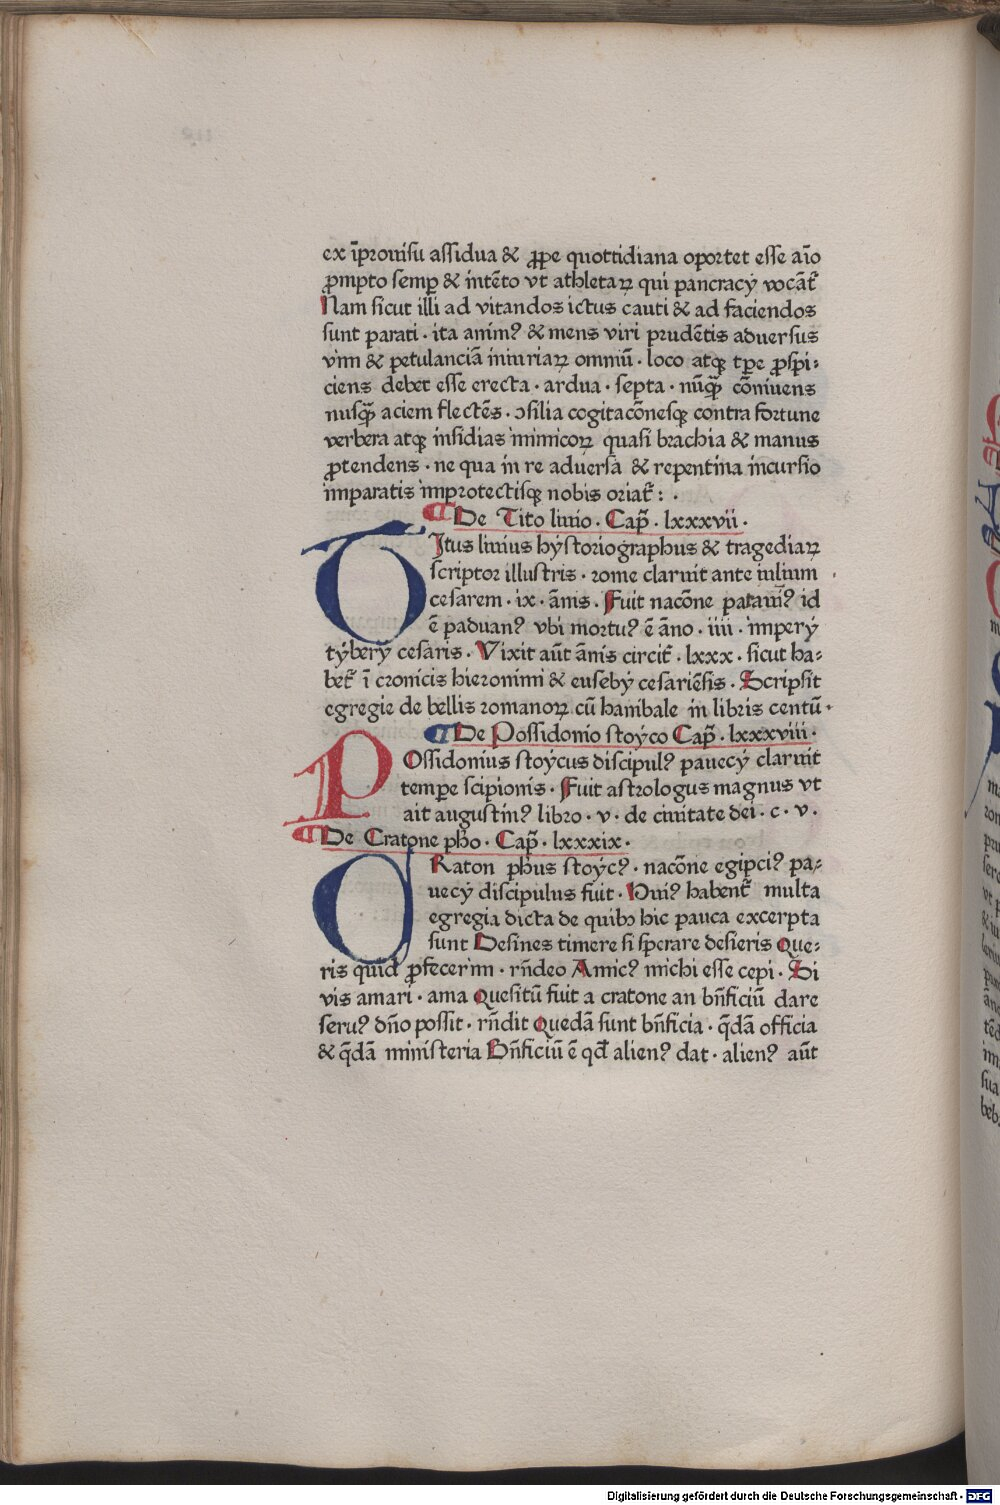 ex īprouisu assidua & ꝓpe quottidiana oportet esse aīo
ꝓmpto semꝑ & intēto vt athletaꝝ qui pancracÿ vocāt᷑
Nam sicut illi ad vitandos ictus cauti & ad faciendos
sunt parati · ita animꝰ & mens viri prudētis aduersus
vim & petulanciā iniuriaꝝ omniū · loco atqꝫ tꝑe ꝓspi⸗
ciens debet esse erecta · ardua · septa · nūqꝫ̄ cōniuens
nusqꝫ̄ aciem flectēs · ɔsilia cogitacōnesqꝫ contra fortune
verbera atqꝫ insidias inimicoꝝ quasi brachia & manus
ꝓtendens · ne qua in re aduersa & repentina incursio
imparatis improtectisqꝫ nobis oriat᷑ : ·
¶ De Tito liuio · Cap̄ · lxxxvii ·
TItus liuius hÿstoriographus & tragediaꝝ
scriptor illustris · rome claruit ante iulium
cesarem · ix · ānis · Fuit nacōne patauīꝰ id
ē paduanꝰ vbi mortuꝰ ē āno · iiii · imperÿ
tÿberÿ cesaris · Vixit aūt ānis circit᷑ · lxxx · sicut ha⸗
bet᷑ ī cronicis hieronimi & eusebÿ cesariēsis · Scripsit
egregie de bellis romanoꝝ cū hanibale in libris centū ·
¶ De Possidonio stoÿco Cap̄ · lxxxviii ·
POssidonius stoÿcus discipulꝰ pauecÿ claruit
temꝑe scipionis · Fuit astrologus magnus vt
ait augustinꝰ libro · v · de ciuitate dei · c · v ·
¶ De Cratone ph̄o · Cap̄ · lxxxix ·
CRaton ph̄us stoÿcꝰ · nacōne egipciꝰ pa⸗
uecÿ discipulus fuit · Huiꝰ habent᷑ multa
egregia dicta de quibꝫ hic pauca excerpta
sunt Desines timere si sperare desieris Que⸗
ris quid ꝓfecerim · rn̄deo Amicꝰ michi esse cepi · Si
vis amari · ama Quesitū fuit a cratone an bn̄ficiū dare
seruꝰ dn̄o possit · rn̄dit Quedā sunt bn̄ficia · q̄dā officia
& q̄dā ministeria Bn̄ficiū ē qd̄ alienꝰ dat · alienꝰ aūt
Digitalisierung gefördert durch die Deutsche Forschungsgemeinschaft - DFG